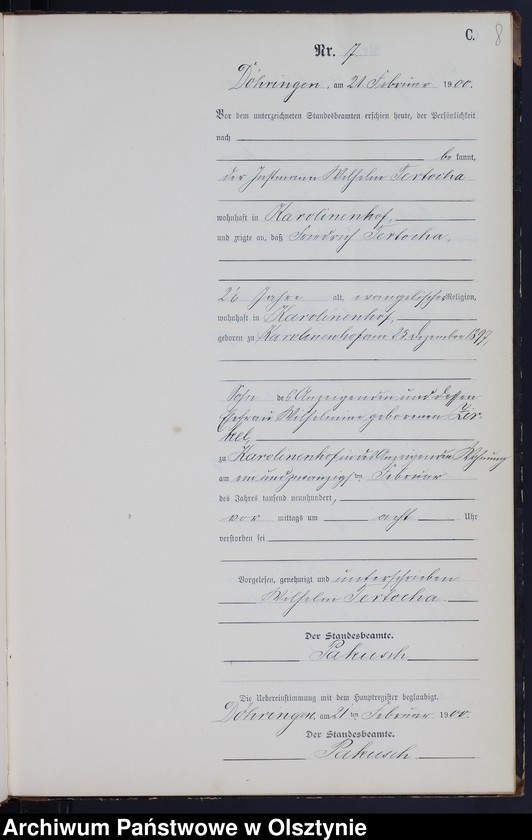 C.
8
Nr. 17
Döhringen, am 21. Februar 1900.
Vor dem unterzeichneten Standesbeamten erschien heute, der Persönlichkeit
nach
be kannt,
der Instmann Wilhelm Tertocha
wohnhaft in Karolinenhof,
und zeigte an, daß Friedrich Tertocha,
2 Jahre alt, evangelischer Religion,
wohnhaft in Karolinenhof,
geboren zu Karolinenhof am 23. Dezember 1897,
Sohn des Anzeigenden und dessen
Ehefrau Wilhelmine geborenen Zir-
kel,
zu Karolinenhof in des Anzeigenden Wohnung
am ein und zwanzigsten Februar
des Jahres tausend neunhundert,
vor mittags um acht Uhr
verstorben sei
Vorgelesen, genehmigt und unterschrieben
Wilhelm Tertocha
Der Standesbeamte.
Pakusch
Die Uebereinstimmung mit dem Hauptregister beglaubigt.
Döhringen, am 21ten Februar 1900.
Der Standesbeamte.
Pakusch
Archiwum Państwowe w Olsztynie